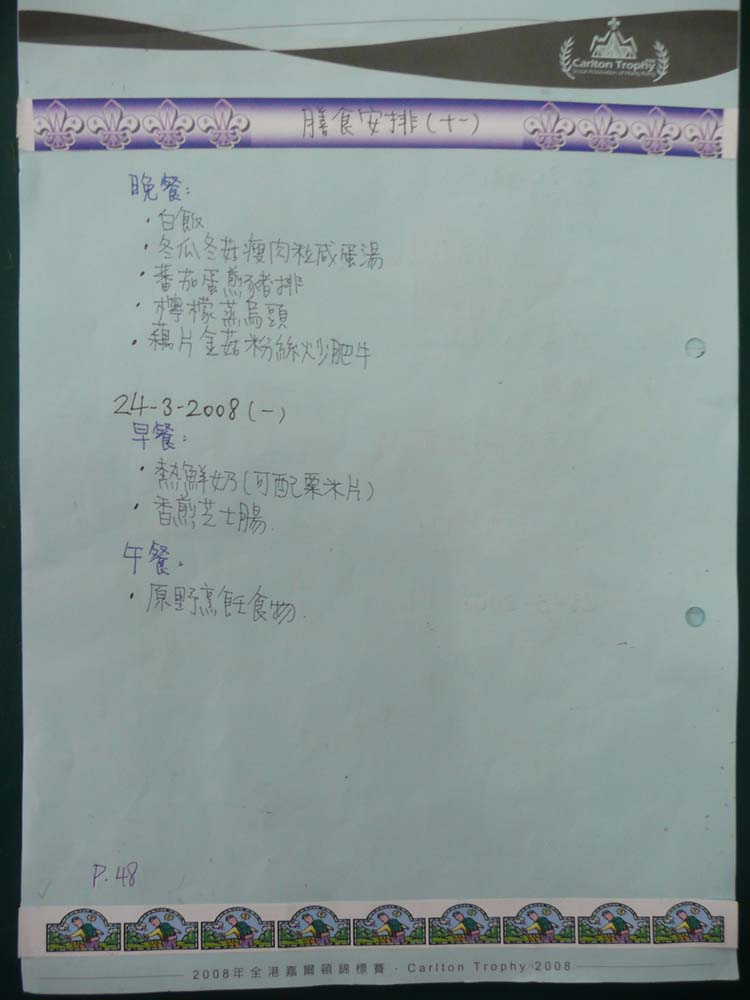 Carlton Trophy
Scout Association of Hong Kong
膳食安排(十一)
晚餐:
·白飯
·冬瓜冬菇瘦肉粒咸蛋湯
·蕃茄蛋煎豬排
·檸檬蒸烏頭
·藕片金菇粉絲炒肥牛
24-3-2008(一)
早餐:
·熱鮮奶(可配粟米片)
·香煎芝士腸
午餐:
·原野烹飪食物
P.48
2008年全港嘉爾頓錦標賽·Carlton Trophy 2008